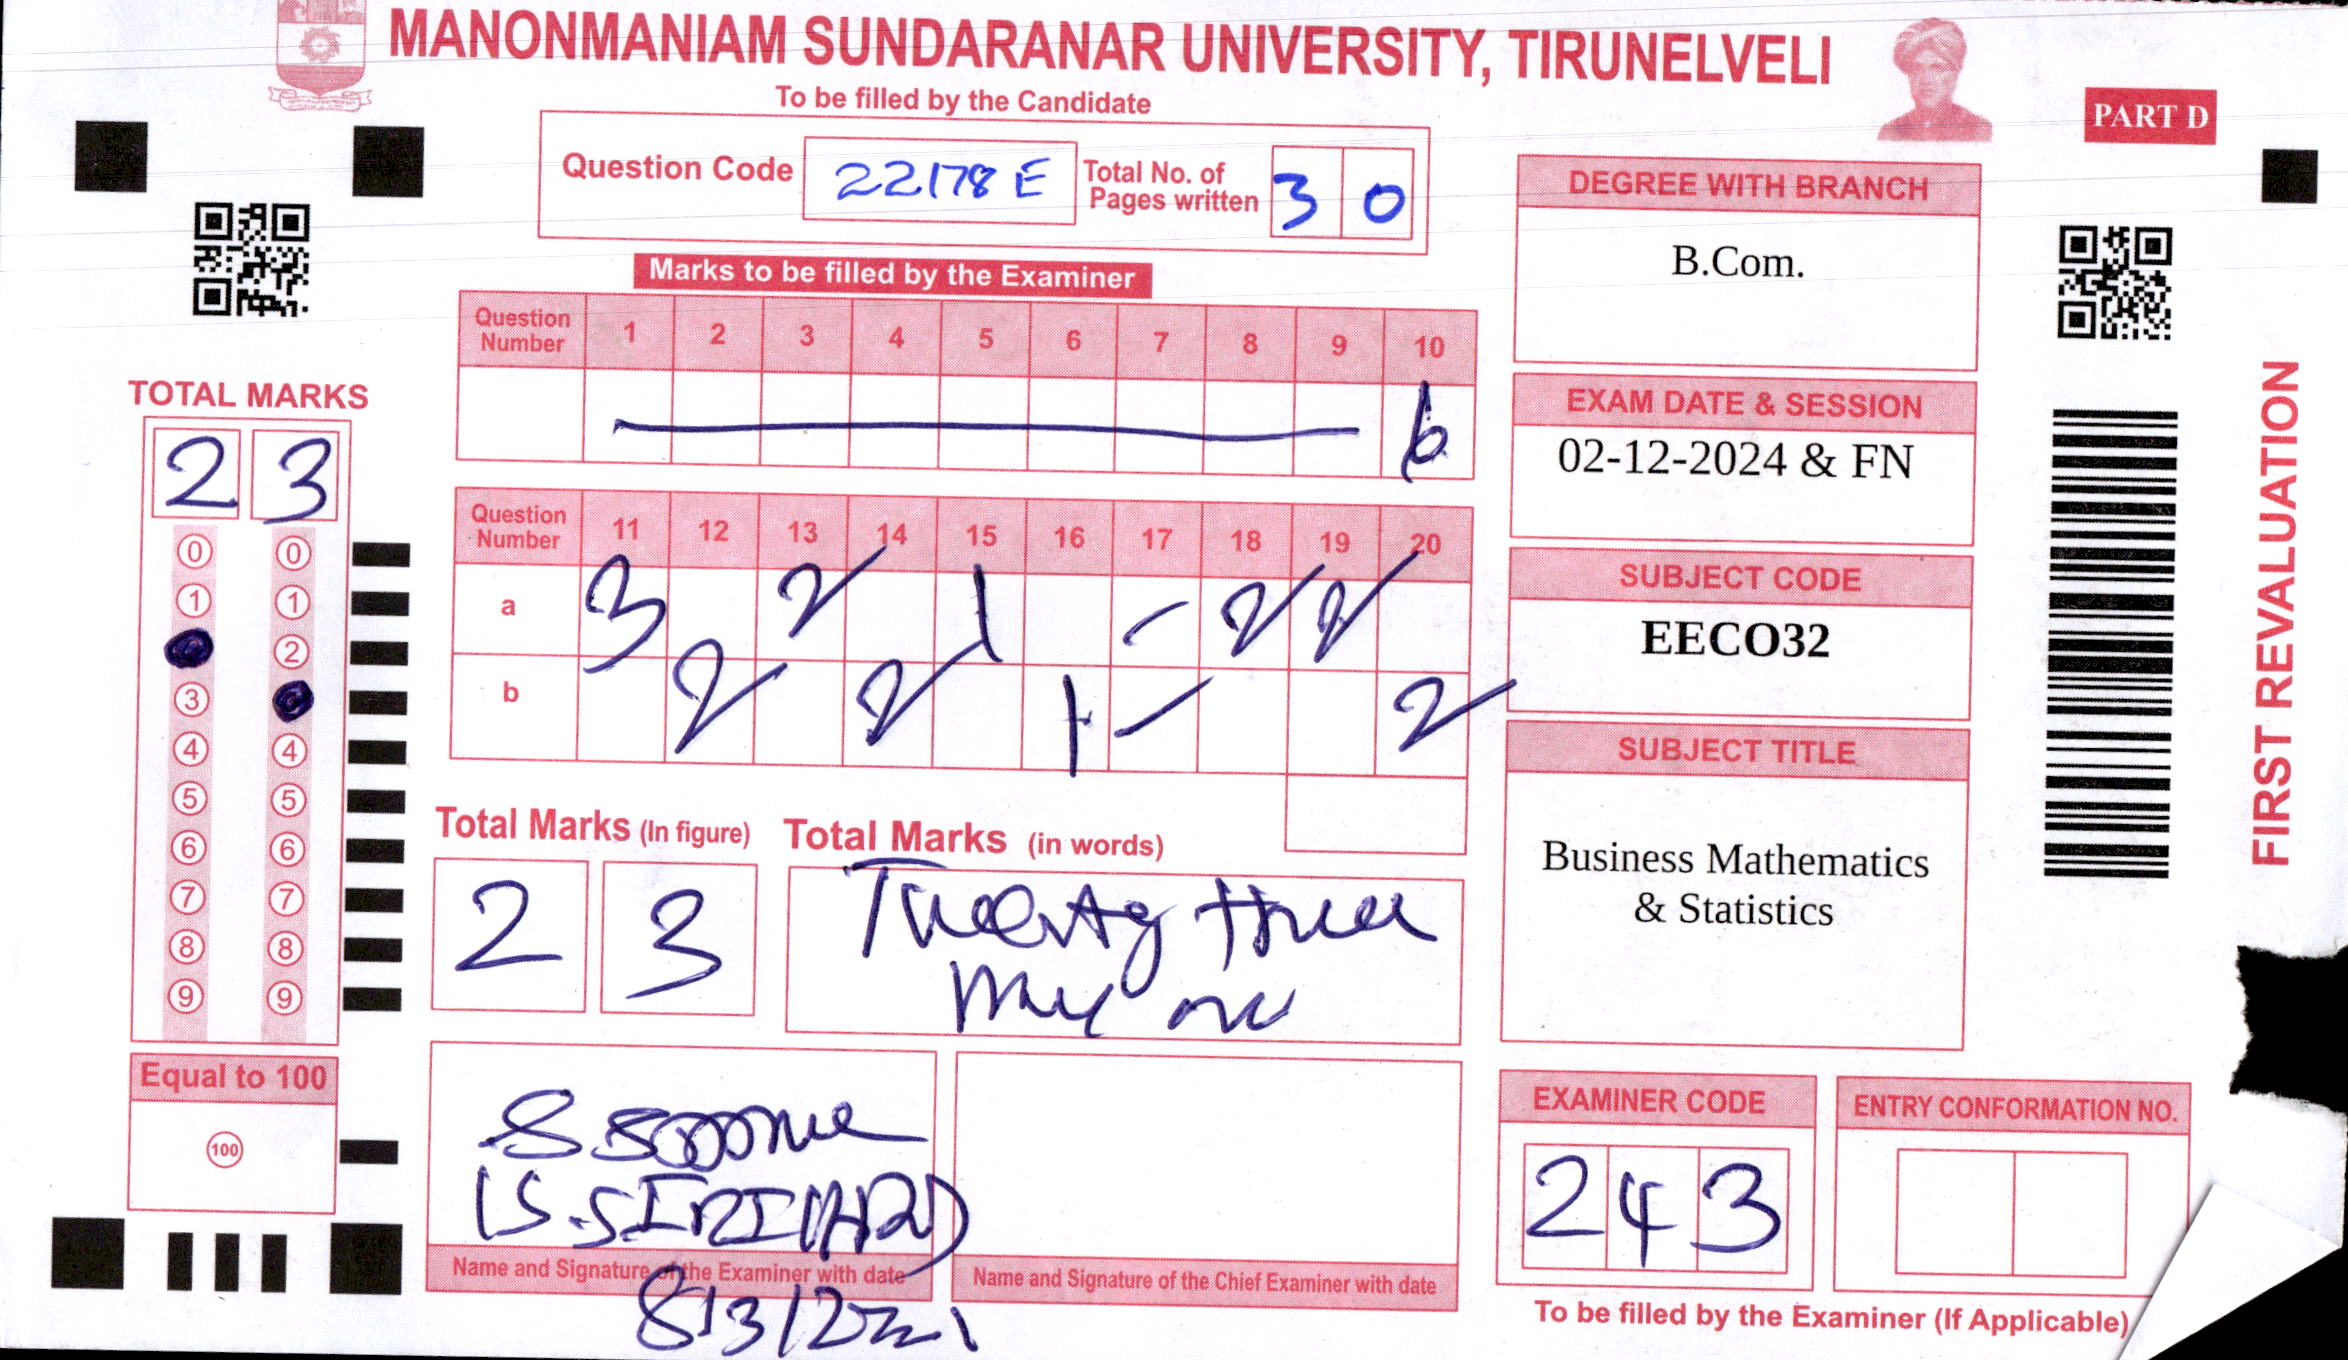 MANONMANIAM SUNDARANAR UNIVERSITY, TIRUNELVELI
To be filled by the Candidate
PART D
Question Code 22178 E Total No. of Pages written 3 0
Marks to be filled by the Examiner
Question Number 1 2 3 4 5 6 7 8 9 10
6
Question Number 11 12 13 14 15 16 17 18 19 20
a 3 2 1 - 2 2
b 2 2 1 - 2
TOTAL MARKS
2 3
0 0
1 1
2
3
4 4
5 5
6 6
7 7
8 8
9 9
Equal to 100
100
Total Marks (In figure)
2 3
Total Marks (in words)
Twenty three
Name and Signature of the Examiner with date
Name and Signature of the Chief Examiner with date
DEGREE WITH BRANCH
B.Com.
EXAM DATE & SESSION
02-12-2024 & FN
SUBJECT CODE
EECO32
SUBJECT TITLE
Business Mathematics
& Statistics
EXAMINER CODE
243
ENTRY CONFORMATION NO.
To be filled by the Examiner (If Applicable)
FIRST REVALUATION